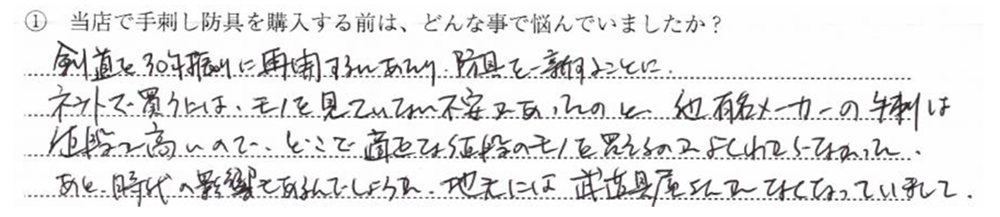 ① 当店で手刺し防具を購入する前は、どんな事で悩んでいましたか？
剣道を30年振りに再開するにあたり、防具を一新することに。
ネットで買うには、モノを見ていない不安があったのと、他有名メーカーの手刺は
値段が高いので、どこで適正な値段のモノを買えるのかよくわからなかった。
あと、時代の影響もあるんでしょうか、地元には武道具屋さんがなくなっていまして。